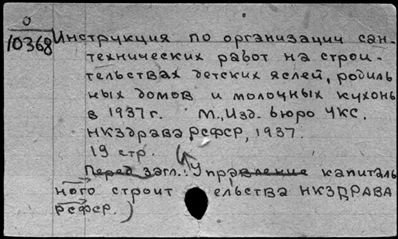 О
10368
Инструкция по организации сан-
технических работ на строи-
тельствах детских яслей, родиль
ных домов и молочных кухонь
в 1937 г. М., Изд. бюро ЧКС.
НКЗдрава РСФСР, 1937.
19 стр.
Перед загл.: Управление капиталь
ного строит ельства НКЗДРАВА
РСФСР.)